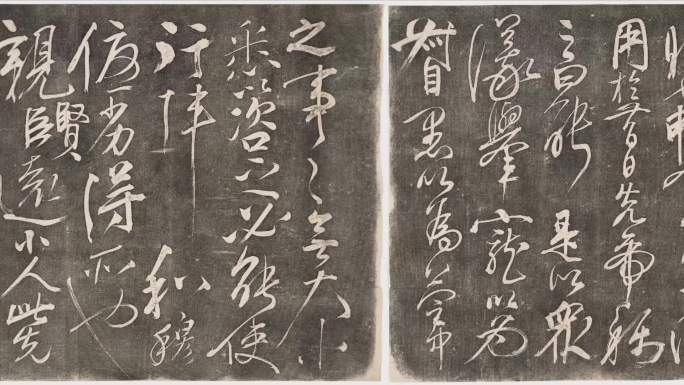 用於昔日先帝稱
之曰能是以衆
議舉寵以為
督愚以為營中
之事事無大小
悉以咨之必能使
行陣和穆
優劣得所也
親賢臣遠小人此先